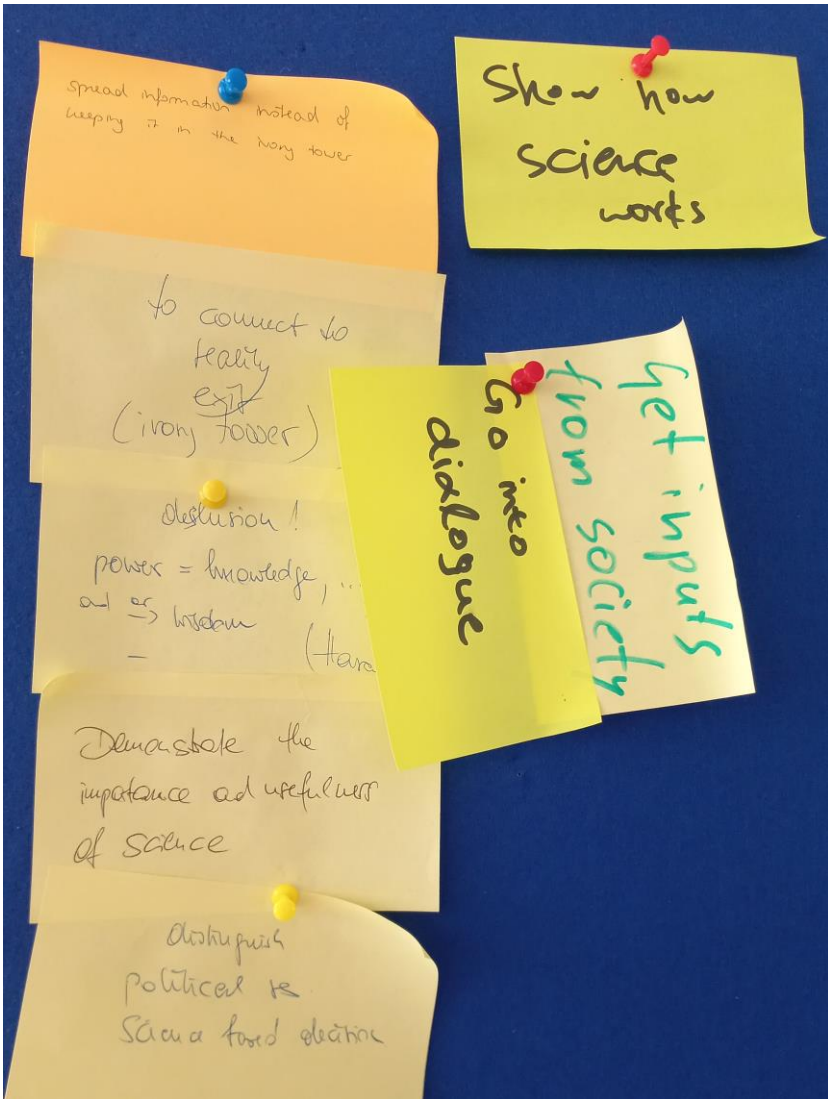 spread information instead of
keeping it in the ivory tower
to connect to
reality
exit
(ivory tower)
power = knowledge, ...
wisdom
Demonstrate the
importance and usefulness
of science
distinguish
political vs
science based
Show how
science
works
Go into
dialogue
Get inputs
from society